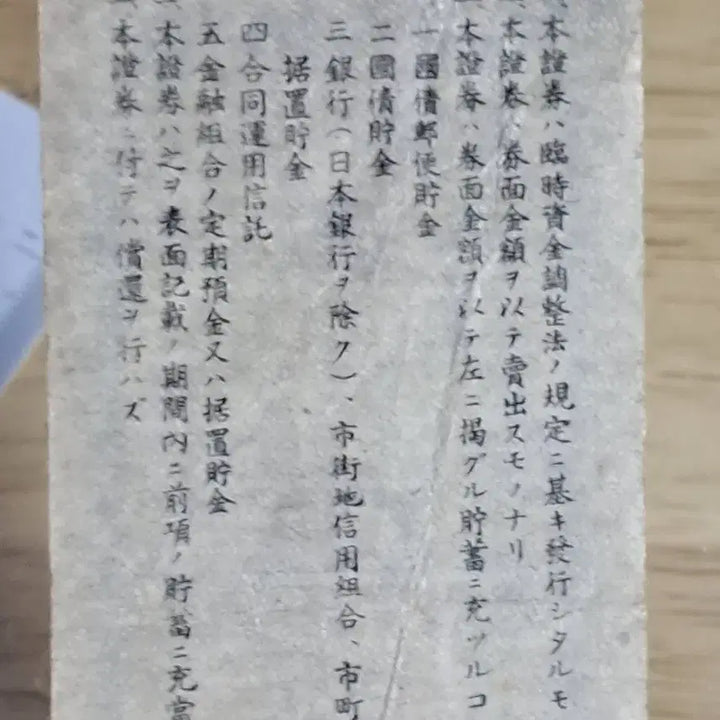 本證券ハ臨時資金調整法ノ規定ニ基キ發行シタルモ
本證券ハ券面金額ヲ以テ賣出スモノナリ
本證券ハ券面金額ヲ以テ左ニ揭グル貯蓄ニ充ツルコ
一國債郵便貯金
二國債貯金
三銀行(日本銀行ヲ除ク)、市街地信用組合、市町
据置貯金
四合同運用信託
五金融組合ノ定期預金又ハ据置貯金
本證券ハ之ヲ表面記載ノ期間內ニ前項ノ貯蓄ニ充當
本證券ニ付テハ償還ヲ行ハズ